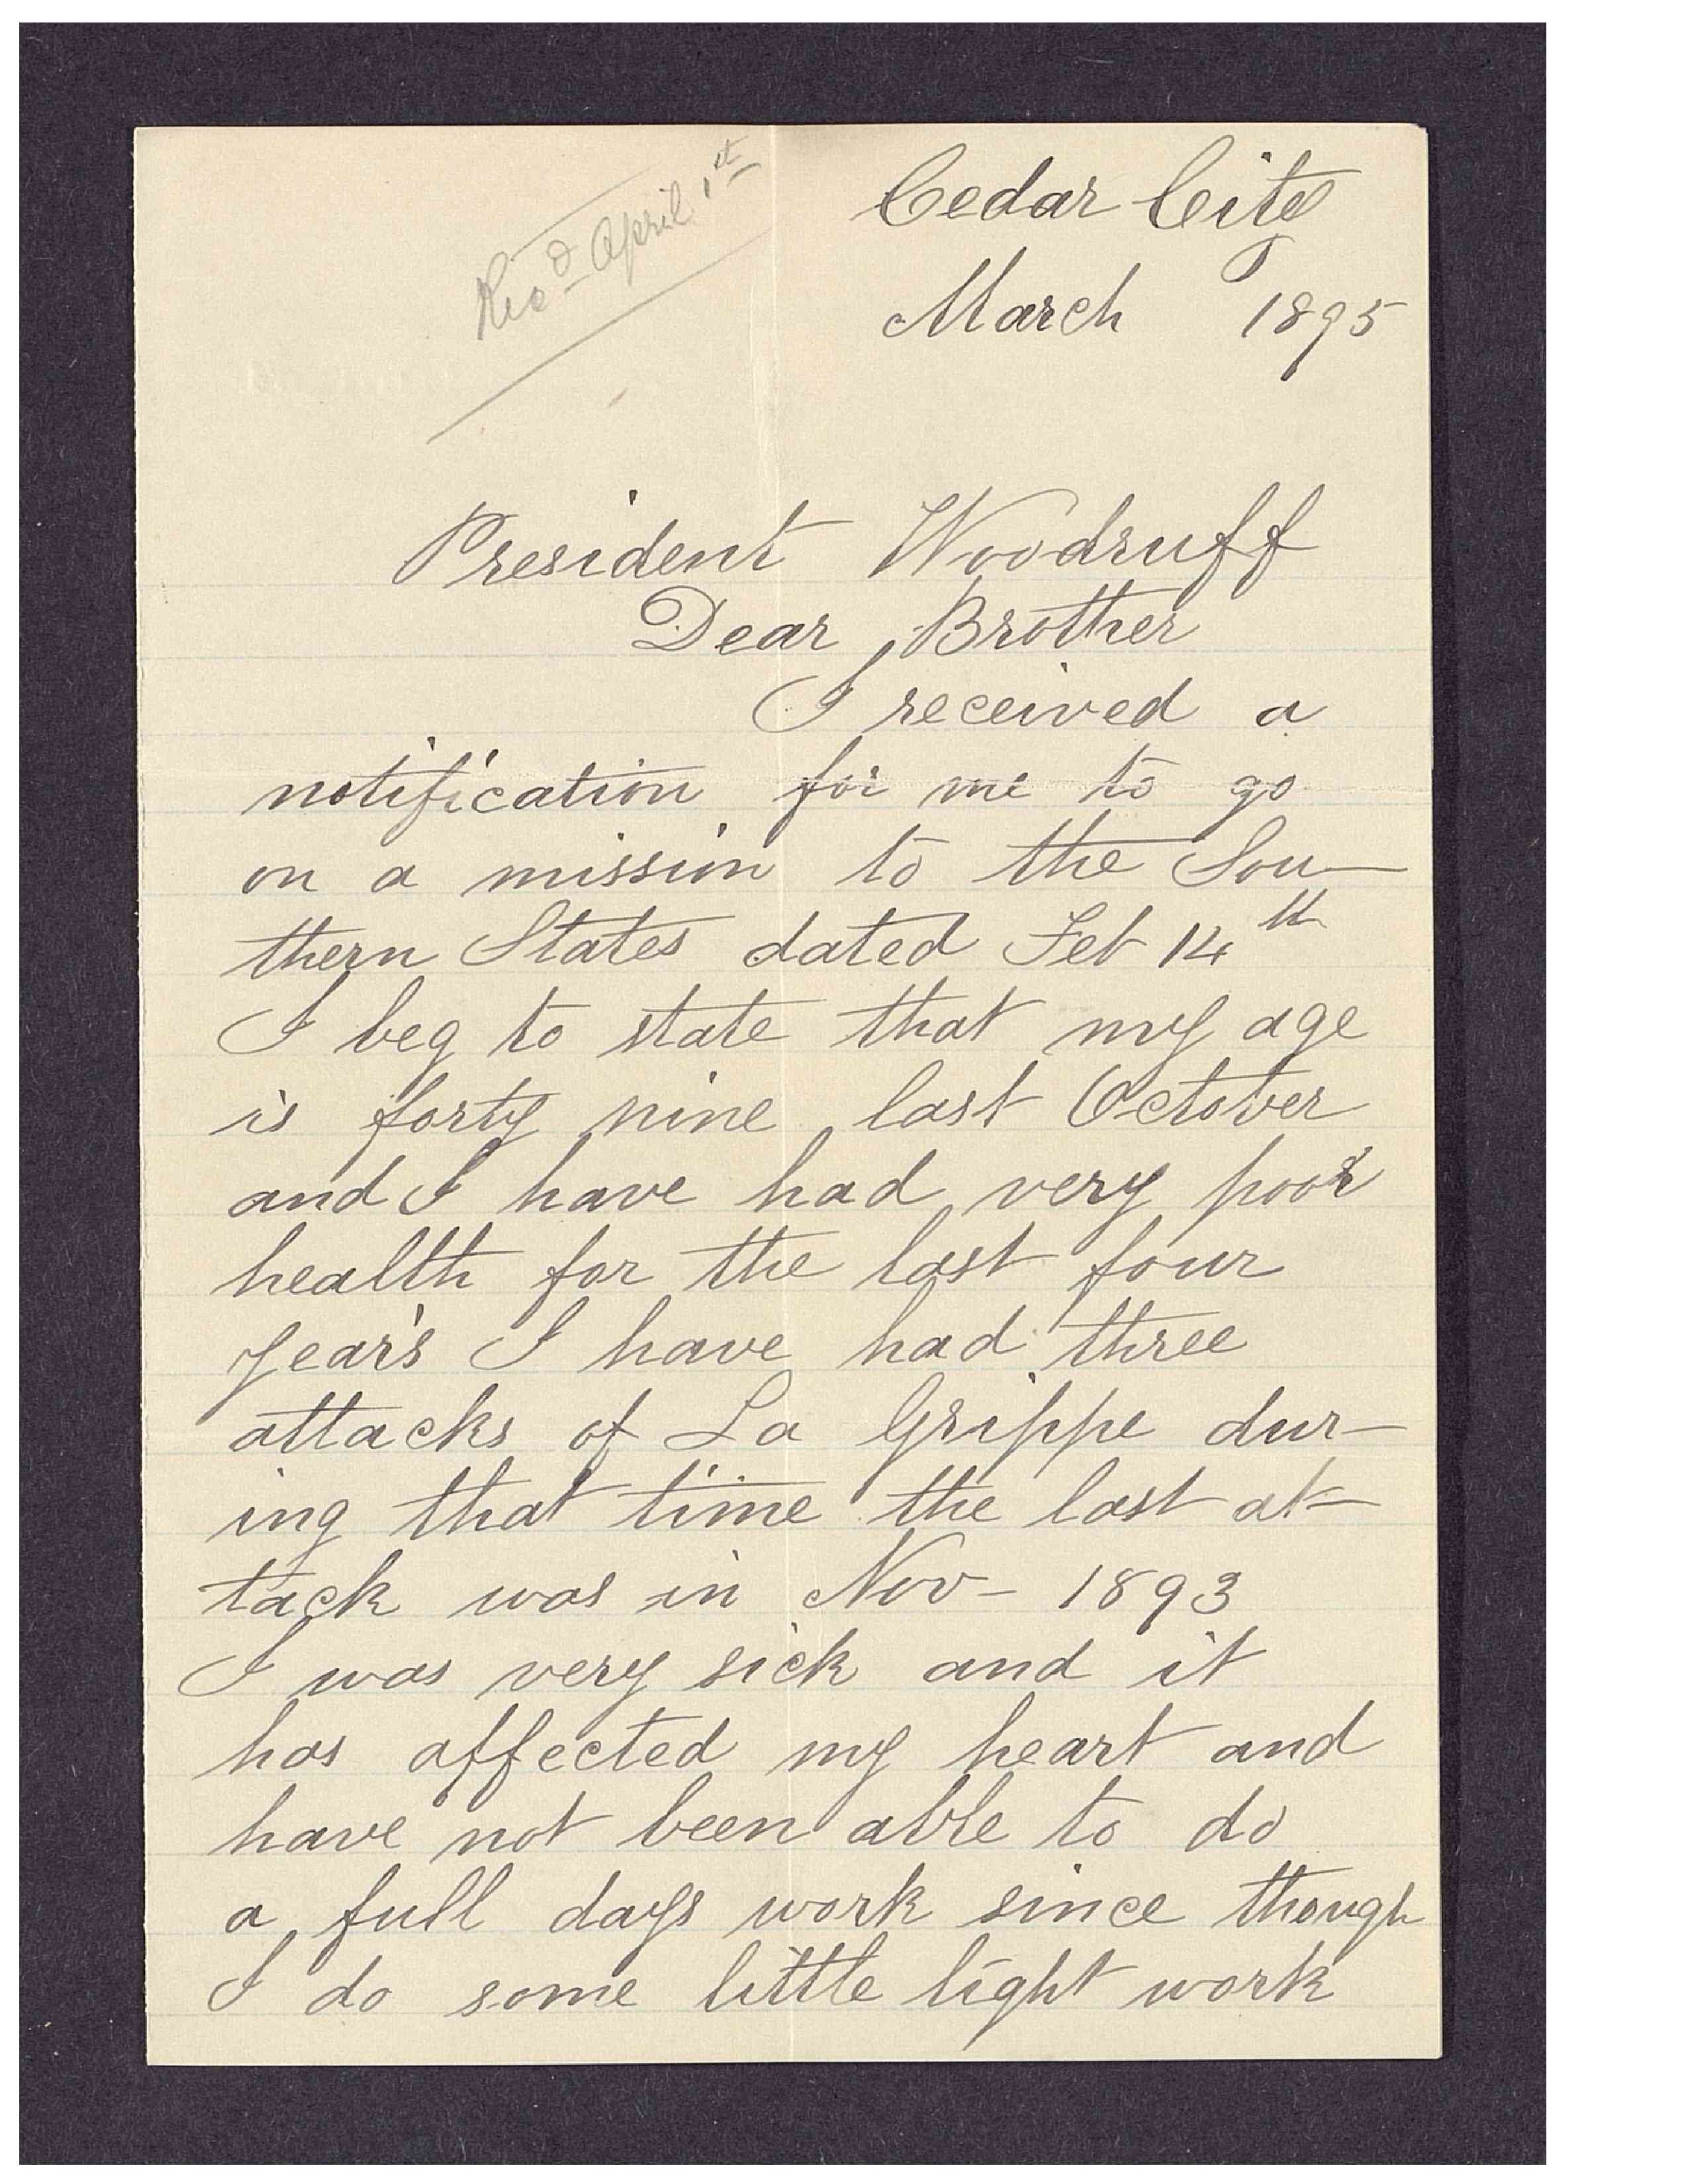 Recd April 1st
Cedar City
March 1895
President Woodruff
Dear Brother
I received a
notification for me to go
on a mission to the Sou-
thern States dated Feb 14th
I beg to state that my age
is forty nine last October
and I have had very poor
health for the last four
year's I have had three
attacks of La Grippe dur-
ing that time the last at-
tack was in Nov- 1893
I was very sick and it
has affected my heart and
have not been able to do
a full days work since though
I do some little light work